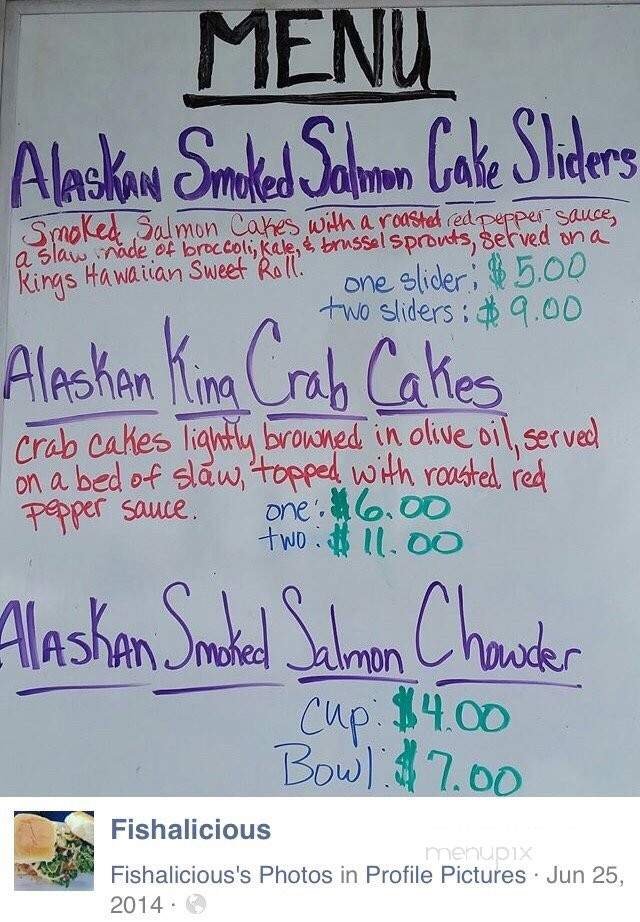 MENU
Alaskan Smoked Salmon Cake Sliders
Smoked Salmon Cakes with a roasted red pepper sauce,
a slaw made of broccoli, kale, & brussel sprouts, served on a
Kings Hawaiian Sweet Roll.
one slider: $5.00
two sliders: $9.00
Alaskan King Crab Cakes
Crab cakes lightly browned in olive oil, served
on a bed of slaw, topped with roasted red
pepper sauce.
one: $6.00
two: $11.00
Alaskan Smoked Salmon Chowder
Cup: $4.00
Bowl: $7.00
Fishalicious
menupix
Fishalicious's Photos in Profile Pictures · Jun 25,
2014 ·